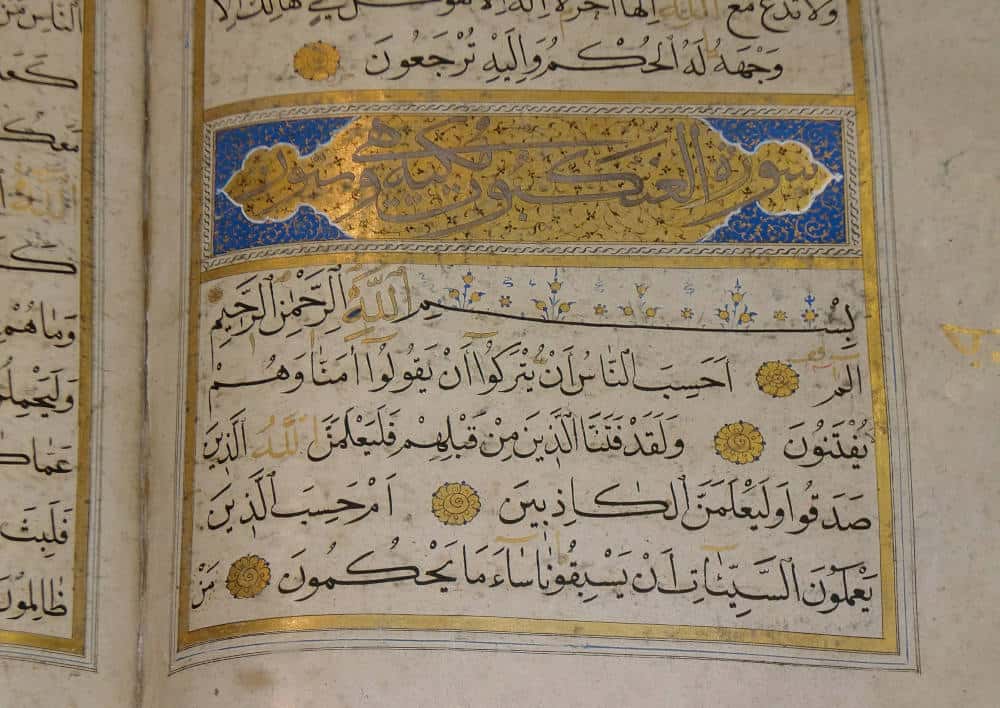 ولا تدع مع الله الها اخر لا اله الا هو كل شيء هالك الا
وَجْهَهُ لَهُ الْحُكْمُ وَاِلَيْهِ تُرْجَعُونَ
سورة العنكبوت مكية وهي ستون
بِسْمِ اللَّهِ الرَّحْمٰنِ الرَّحِيمِ
الم اَحَسِبَ النَّاسُ اَنْ يُتْرَكُوا اَنْ يَقُولُوا اٰمَنَّا وَهُمْ
يُفْتَنُونَ وَلَقَدْ فَتَنَّا الَّذِينَ مِنْ قَبْلِهِمْ فَلَيَعْلَمَنَّ اللّٰهُ الَّذِينَ
صَدَقُوا وَلَيَعْلَمَنَّ الْكَاذِبِينَ اَمْ حَسِبَ الَّذِينَ
يَعْمَلُونَ السَّيِّئَاتِ اَنْ يَسْبِقُونَا سَاءَ مَا يَحْكُمُونَ مَنْ
الناس من
معك
وَمَا هُمْ
وَلَيَحْمِلُنَّ
فَلَبِثَ
ظَالِمُونَ